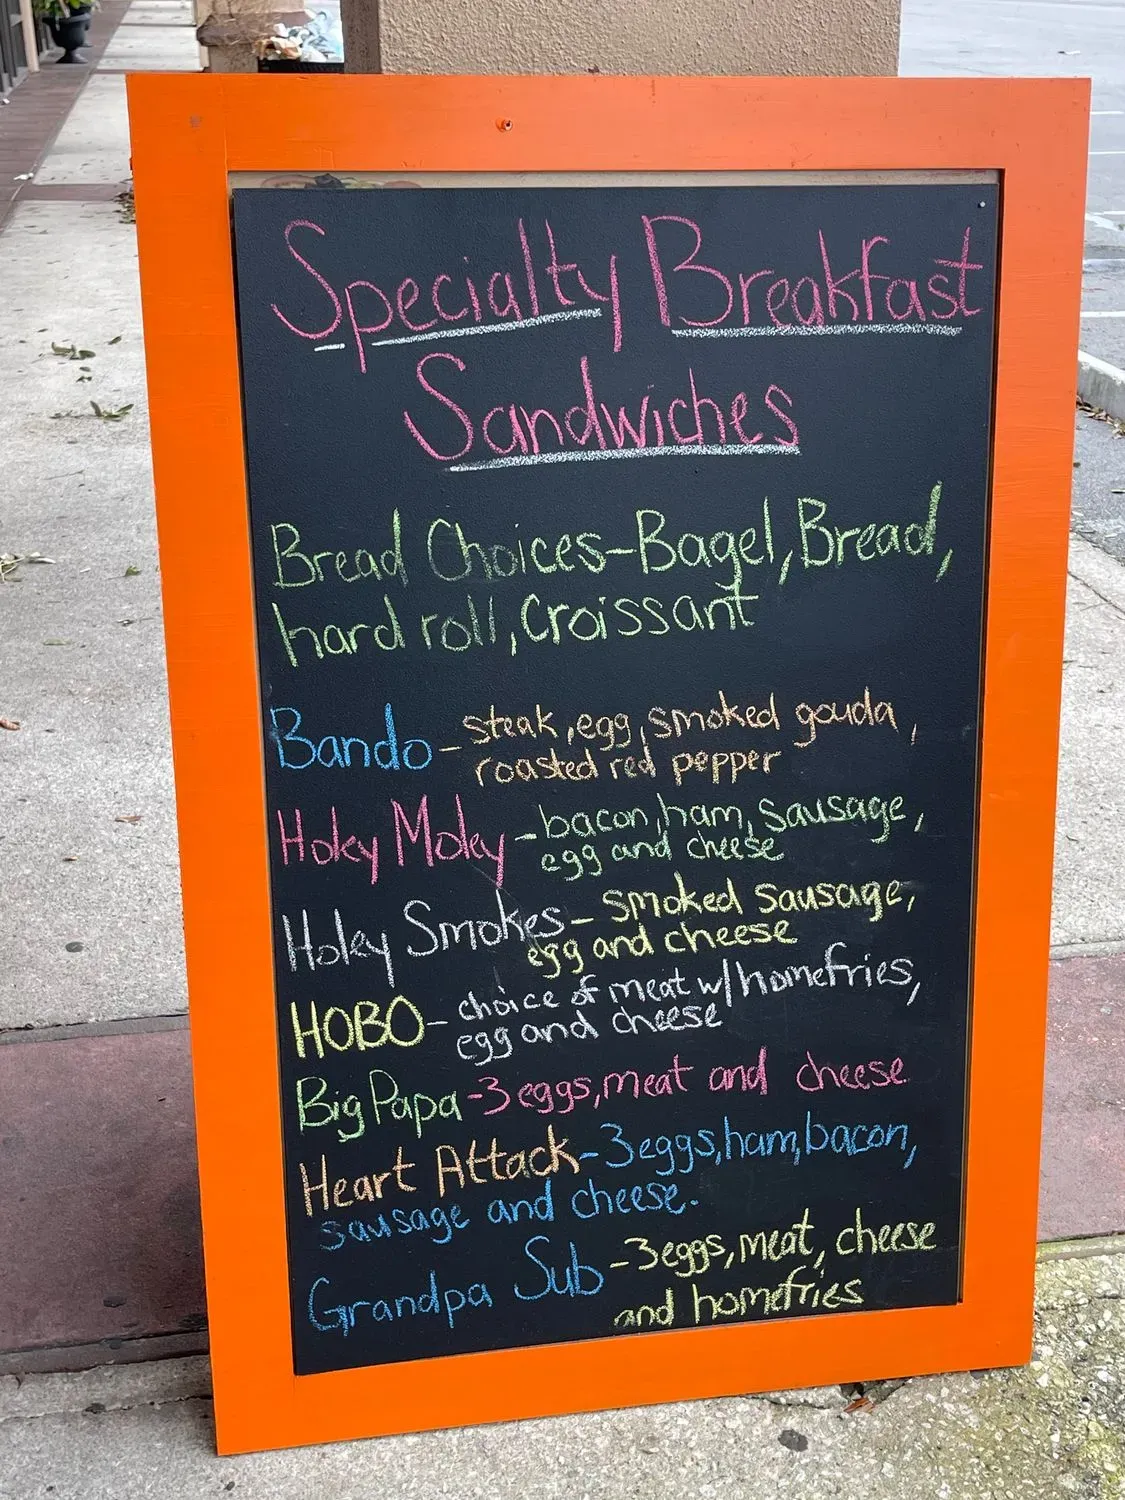 Specialty Breakfast
Sandwiches
Bread Choices-Bagel, Bread,
hard roll, Croissant
Bando - steak, egg, smoked gouda,
roasted red pepper
Hoky Moley - bacon, ham, sausage,
egg and cheese
Holey Smokes - smoked sausage,
egg and cheese
HOBO - choice of meat w/homefries,
egg and cheese
Big Papa - 3 eggs, meat and cheese
Heart Attack - 3 eggs, ham, bacon,
sausage and cheese.
Grandpa Sub - 3 eggs, meat, cheese
and homefries